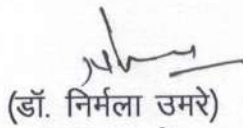 (डॉ. निर्मला उमरे)